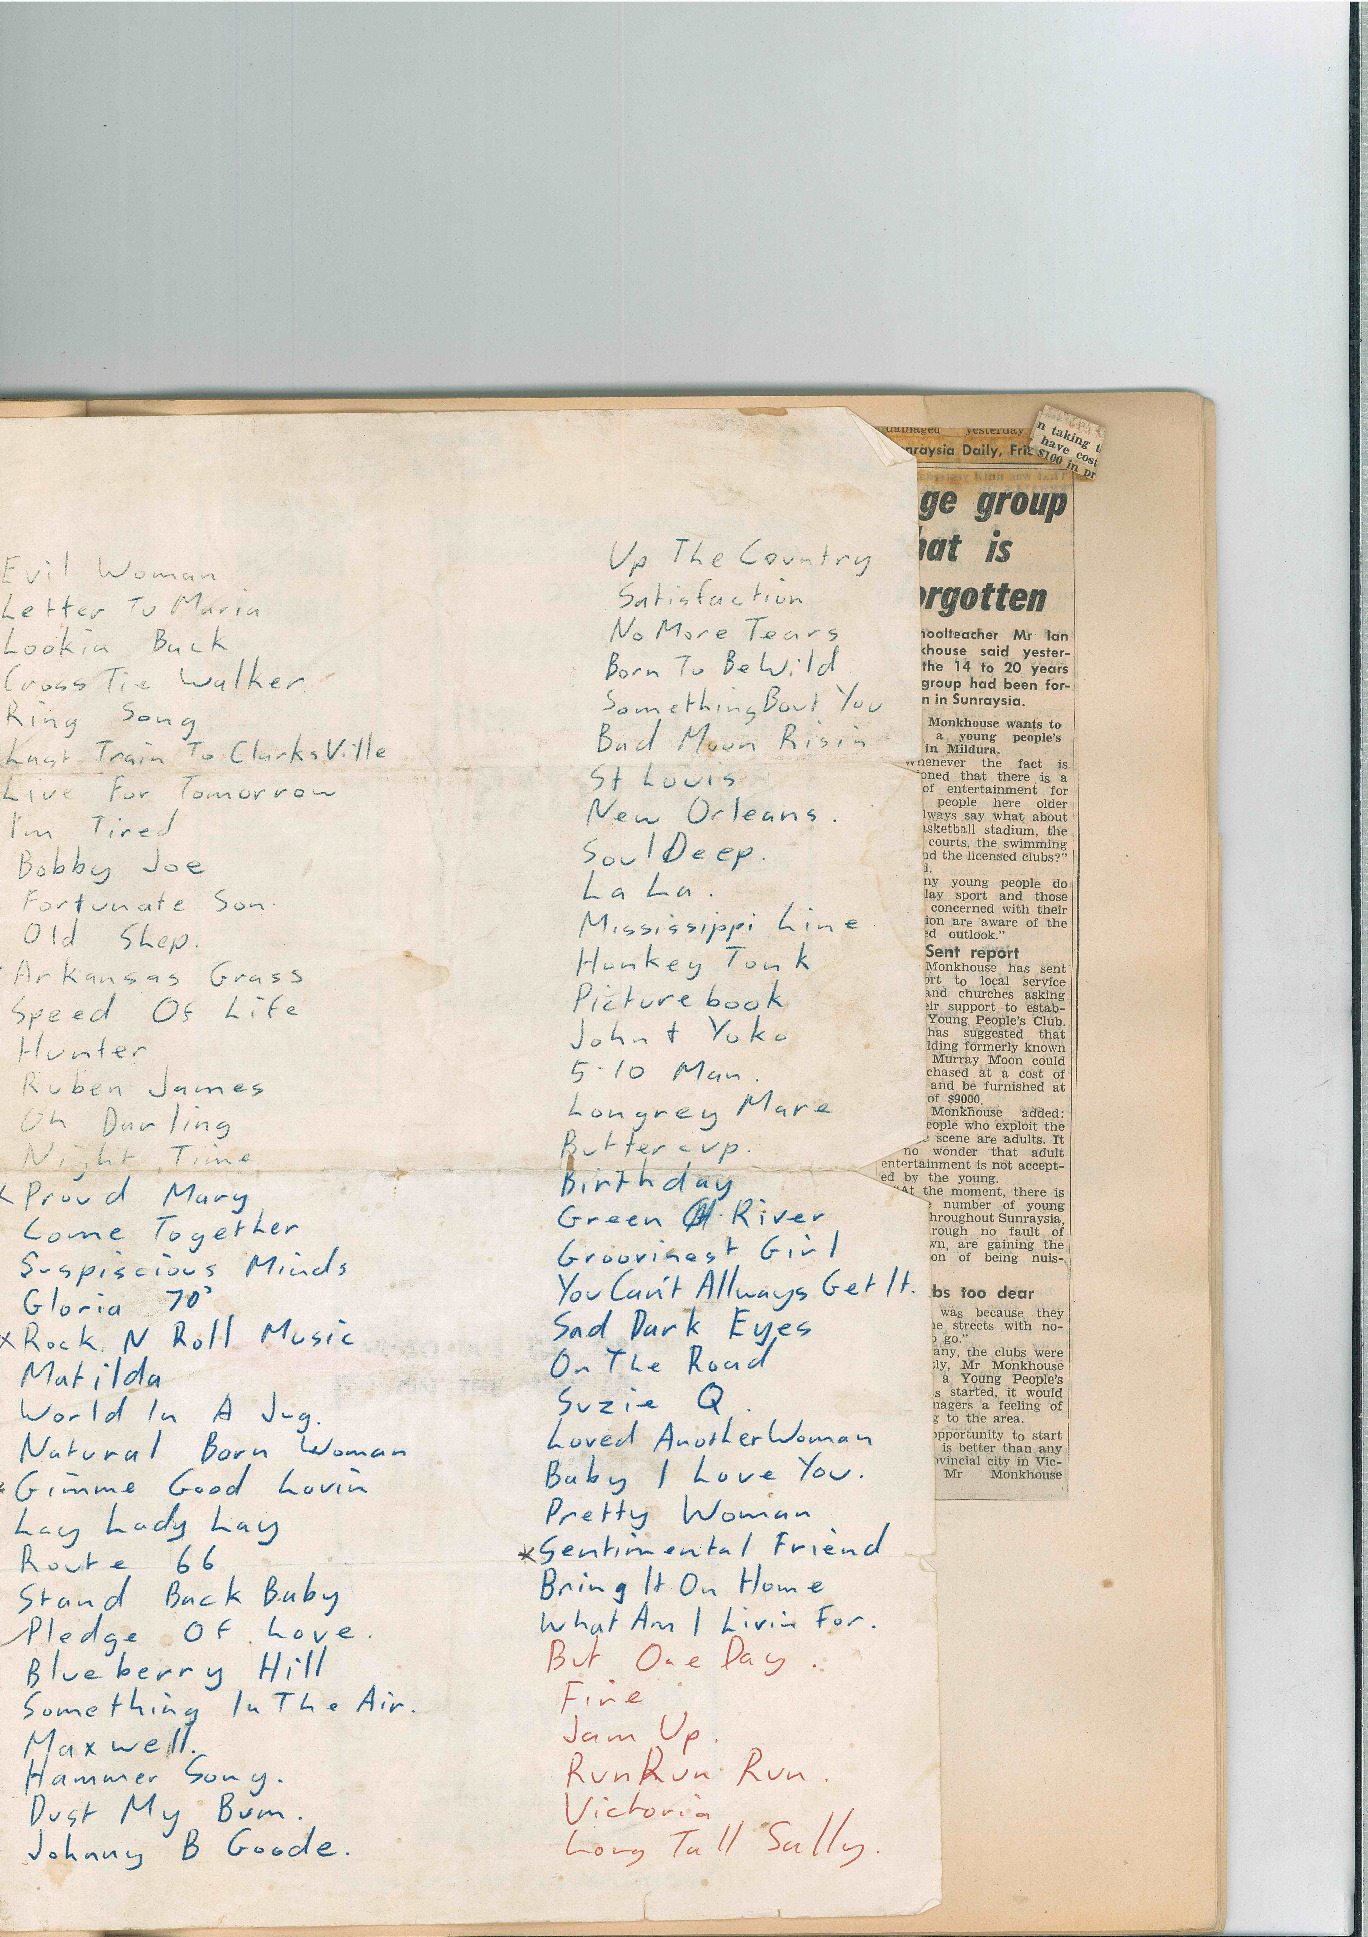 Evil Woman
Letter To Maria
Lookin Back
Cross Tie Walker
Ring Song
Last Train To ClarksVille
Live For Tomorrow
I'm Tired
Bobby Joe
Fortunate Son.
Old Shep.
Arkansas Grass
Speed Of Life
Hunter
Ruben James
Oh Darling
Night Time
x Proud Mary
Come Together
Suspiscious Minds
Gloria 70'
x Rock N Roll Music
Matilda
World In A Jug.
Natural Born Woman
Gimme Good Lovin
Lay Lady Lay
Route 66
Stand Back Baby
Pledge Of Love.
Blueberry Hill
Something In The Air.
Maxwell.
Hammer Song.
Dust My Bum.
Johnny B Goode.
Up The Country
Satisfaction
No More Tears
Born To Be Wild
Something Bout You
Bad Moon Risin
St Louis
New Orleans.
Soul Deep.
La La.
Mississippi Line
Honkey Tonk
Picturebook
John + Yoko
5·10 Man.
Longrey Mare
Buttercup.
Birthday
Green River
Groovinest Girl
You Can't Allways Get It.
Sad Dark Eyes
On The Road
Suzie Q.
Loved Another Woman
Baby I Love You.
Pretty Woman
x Sentimental Friend
Bring It On Home
What Am I Livin For.
But One Day.
Fire
Jam Up.
Run Run Run.
Victoria
Long Tall Sally.
damaged yesterday
nraysia Daily, Fri
n taking t
have cost
$100 in pr
ge group
hat is
orgotten
hoolteacher Mr Ian
khouse said yester-
the 14 to 20 years
group had been for-
n in Sunraysia.
Monkhouse wants to
a young people's
in Mildura.
henever the fact is
oned that there is a
of entertainment for
people here older
lways say what about
asketball stadium, the
courts, the swimming
nd the licensed clubs?"
d.
ny young people do
lay sport and those
concerned with their
ion are aware of the
ed outlook."
Sent report
Monkhouse has sent
ort to local service
and churches asking
eir support to estab-
Young People's Club.
has suggested that
lding formerly known
Murray Moon could
chased at a cost of
and be furnished at
of $9000.
Monkhouse added:
eople who exploit the
scene are adults. It
no wonder that adult
entertainment is not accept-
ed by the young.
"At the moment, there is
number of young
hroughout Sunraysia,
rough no fault of
wn, are gaining the
on of being nuis-
bs too dear
was because they
he streets with no-
o go."
any, the clubs were
ly, Mr Monkhouse
a Young People's
s started, it would
nagers a feeling of
g to the area.
opportunity to start
is better than any
ovincial city in Vic-
Mr Monkhouse